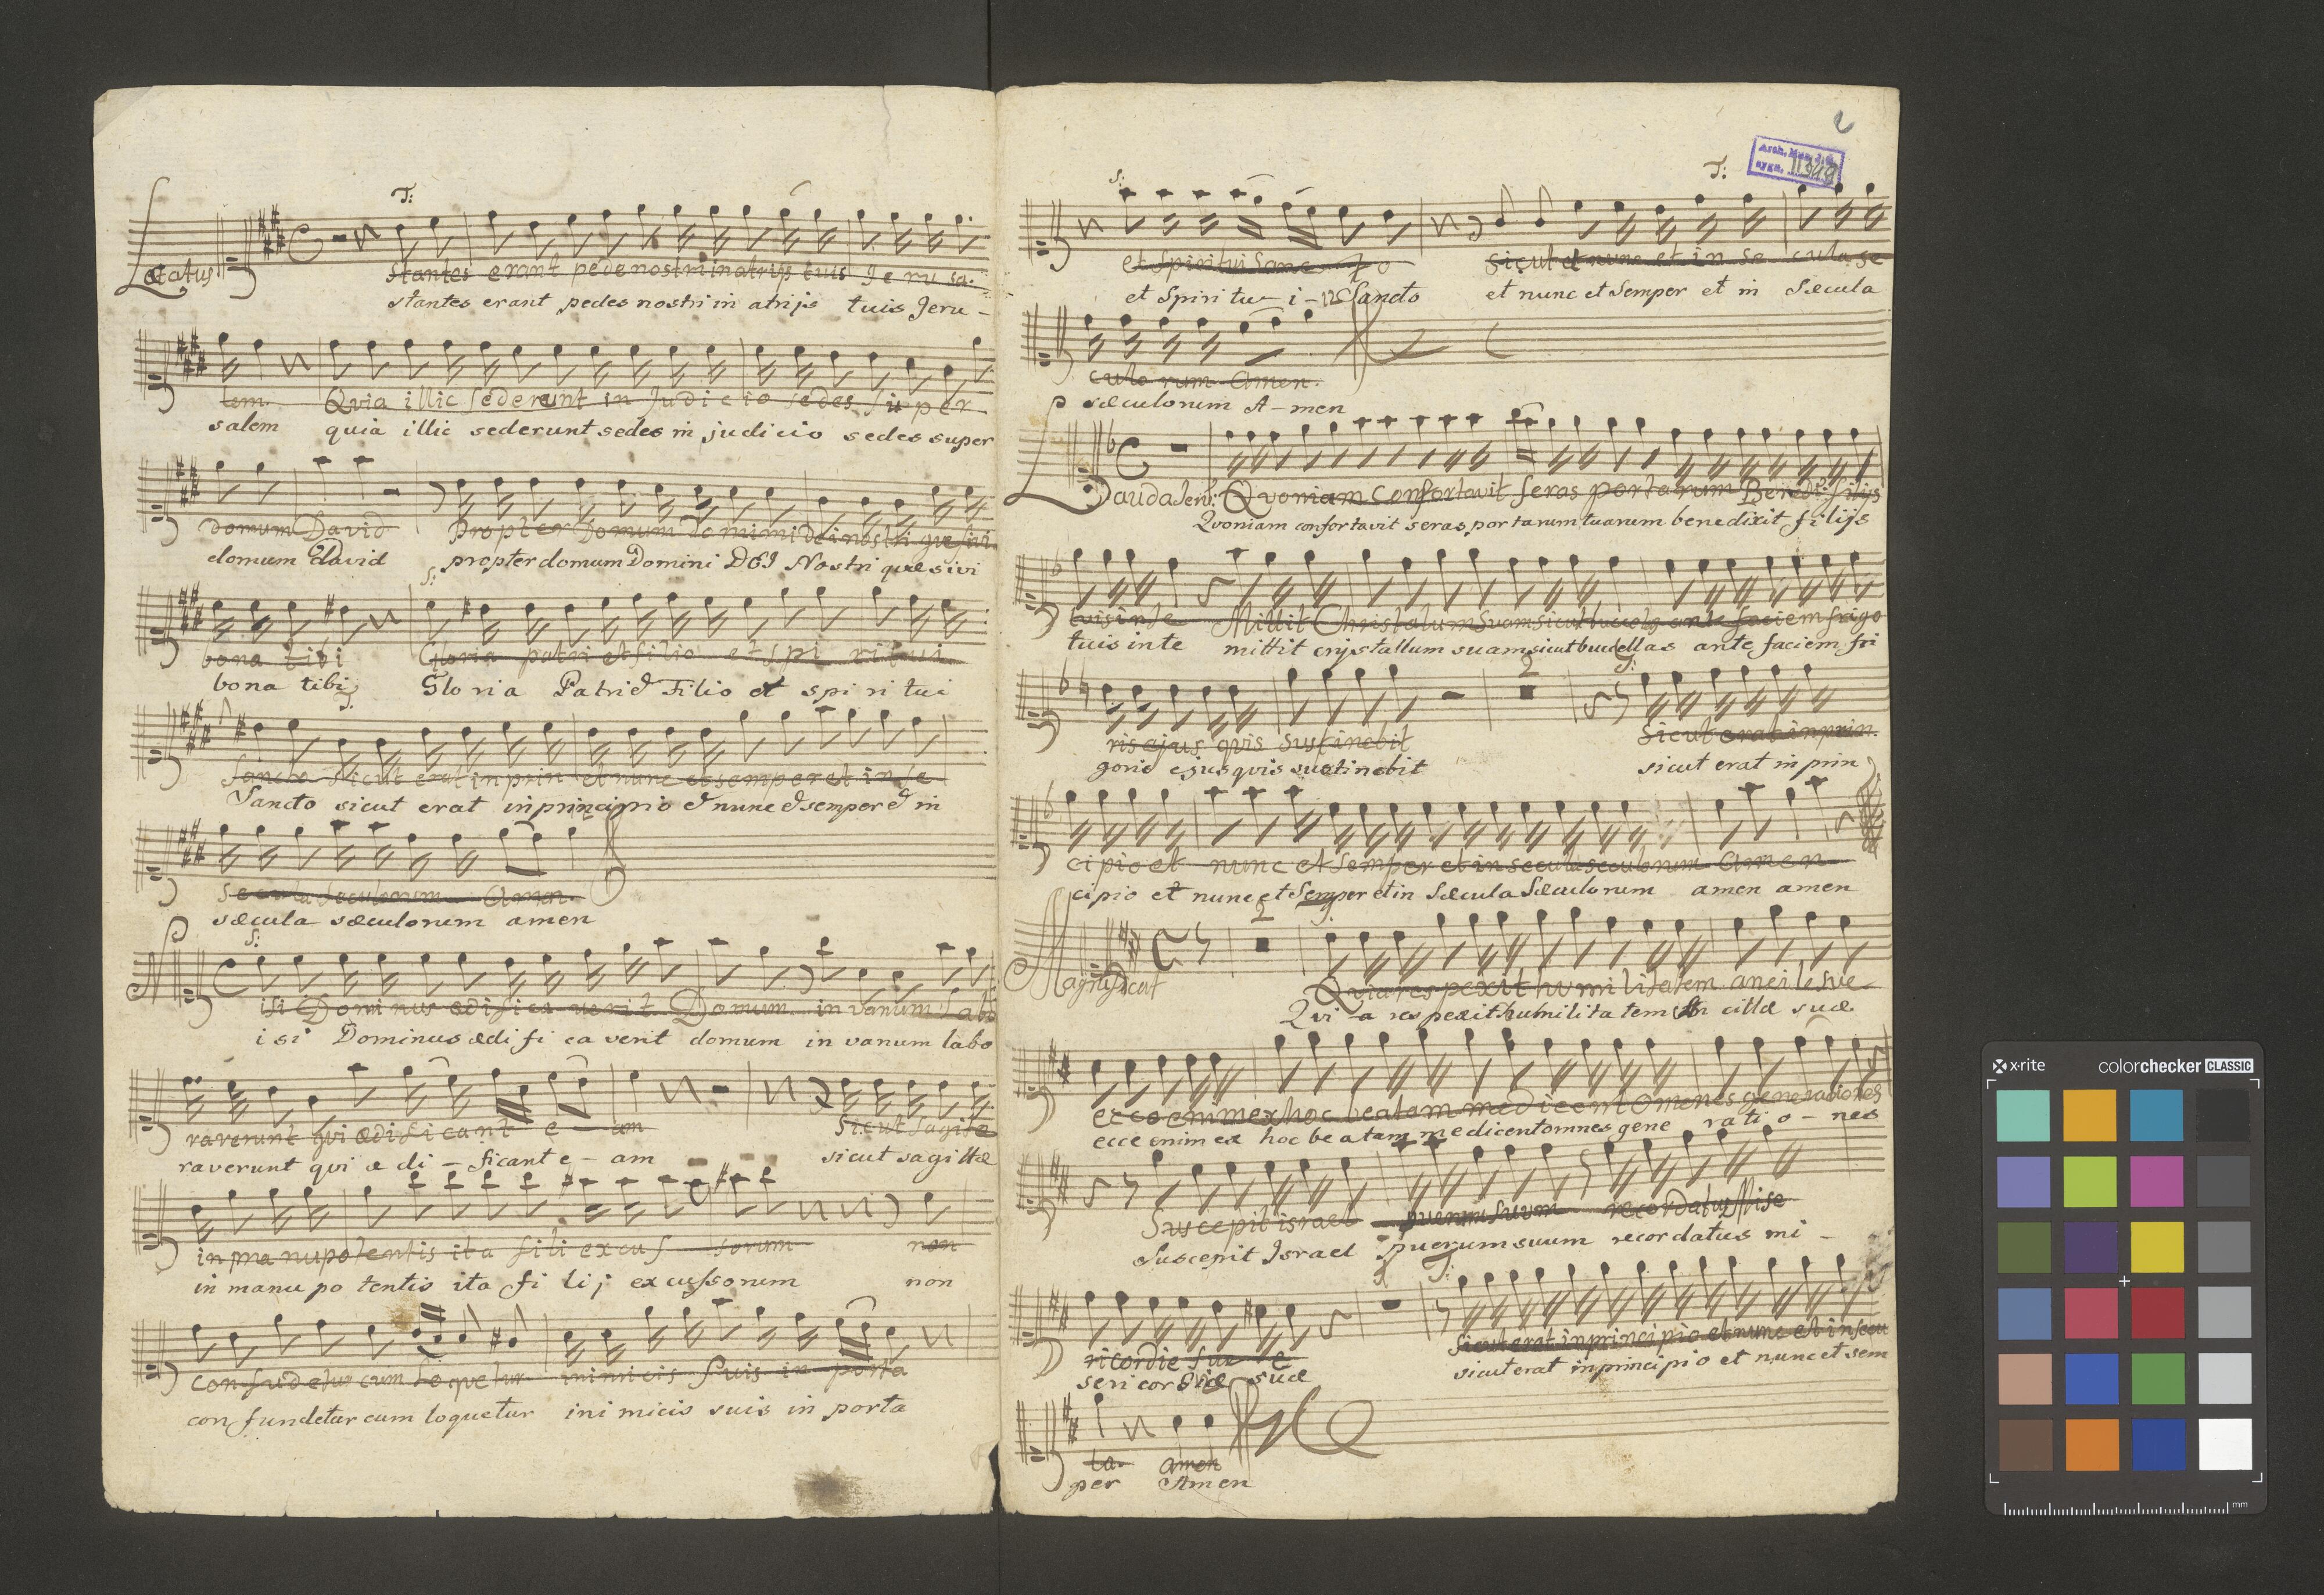 T:
Lætatus
Stantes erant pede nostri in atrijs tuis Jerusa-
stantes erant pedes nostri in atrijs tuis Jeru-
lem. Qvia illic sederunt in Judicio sedes super
salem quia illic sederunt sedes in judicio sedes super
domum David Propter Domum Domini Dei nostri quesivi
domum David propter domum Domini DEI Nostri quæsivi
S:
bona tibi Gloria patri et filio et spiritui
bona tibi Gloria Patri & Filio et spiritui
Sancto sicut erat in prin et nunc et semper et in se
Sancto sicut erat in principio & nunc & semper & in
secula seculorum Amen.
sæcula sæculorum amen
S:
N isi Dominus ædificaverit Domum in vanum labo
isi Dominus ædificaverit domum in vanum labo
raverunt qvi ædificant e-am Sicut sagitæ
raverunt qui ædi-ficant e-am sicut sagittæ
in manu potentis ita fili excussorum non
in manu potentis ita filij excussorum non
confudetur cum loquetur inimicis suis in porta
confundetur cum loquetur inimicis suis in porta
2
Arch. Muz. J. G.
sygn. II 349
S: T:
et Spiritui Sancto Sicut et nunc et in secula se
et Spiritu-i- Sancto et nunc et Semper et in Sæcula
culorum Amen.
sæculorum A-men
Lauda Jeru: Qvoniam confortavit seras portarum Bened: filijs
Qvoniam confortavit seras portarum tuarum benedixit filijs
tuis in te Mittit Christalum Suam sicut bucelas ante faciem frigo
tuis in te mittit crystallum suam sicut buccellas ante faciem fri
2
ris ejus qvis sustinebit Sicut erat in prin.
goris ejus qvis sustinebit sicut erat in prin
cipio et nunc et Semper et in secula seculorum Amen
cipio et nunc et Semper et in Sæcula Sæculorum amen amen
2
Magnificat Qvia respexit humilitatem ancile sue
Qvi-a respexit humilitatem ancillæ suæ
ecce enim ex hoc beatam me dicent omenes generaciones
ecce enim ex hoc beatam me dicent omnes gene rati-o-nes
Suscepit israel puerum suum recordatus Mise
Suscepit Israel puerum suum recordatus mi-
ricordie sue
sericordiæ suæ
Sicut erat in principio et nunc et in secu
sicut erat in principio et nunc et sem
la. amen
per Amen
x-rite colorchecker CLASSIC
mm